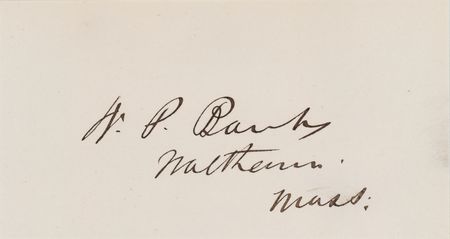 N. P. Banks
Waltham.
Mass.